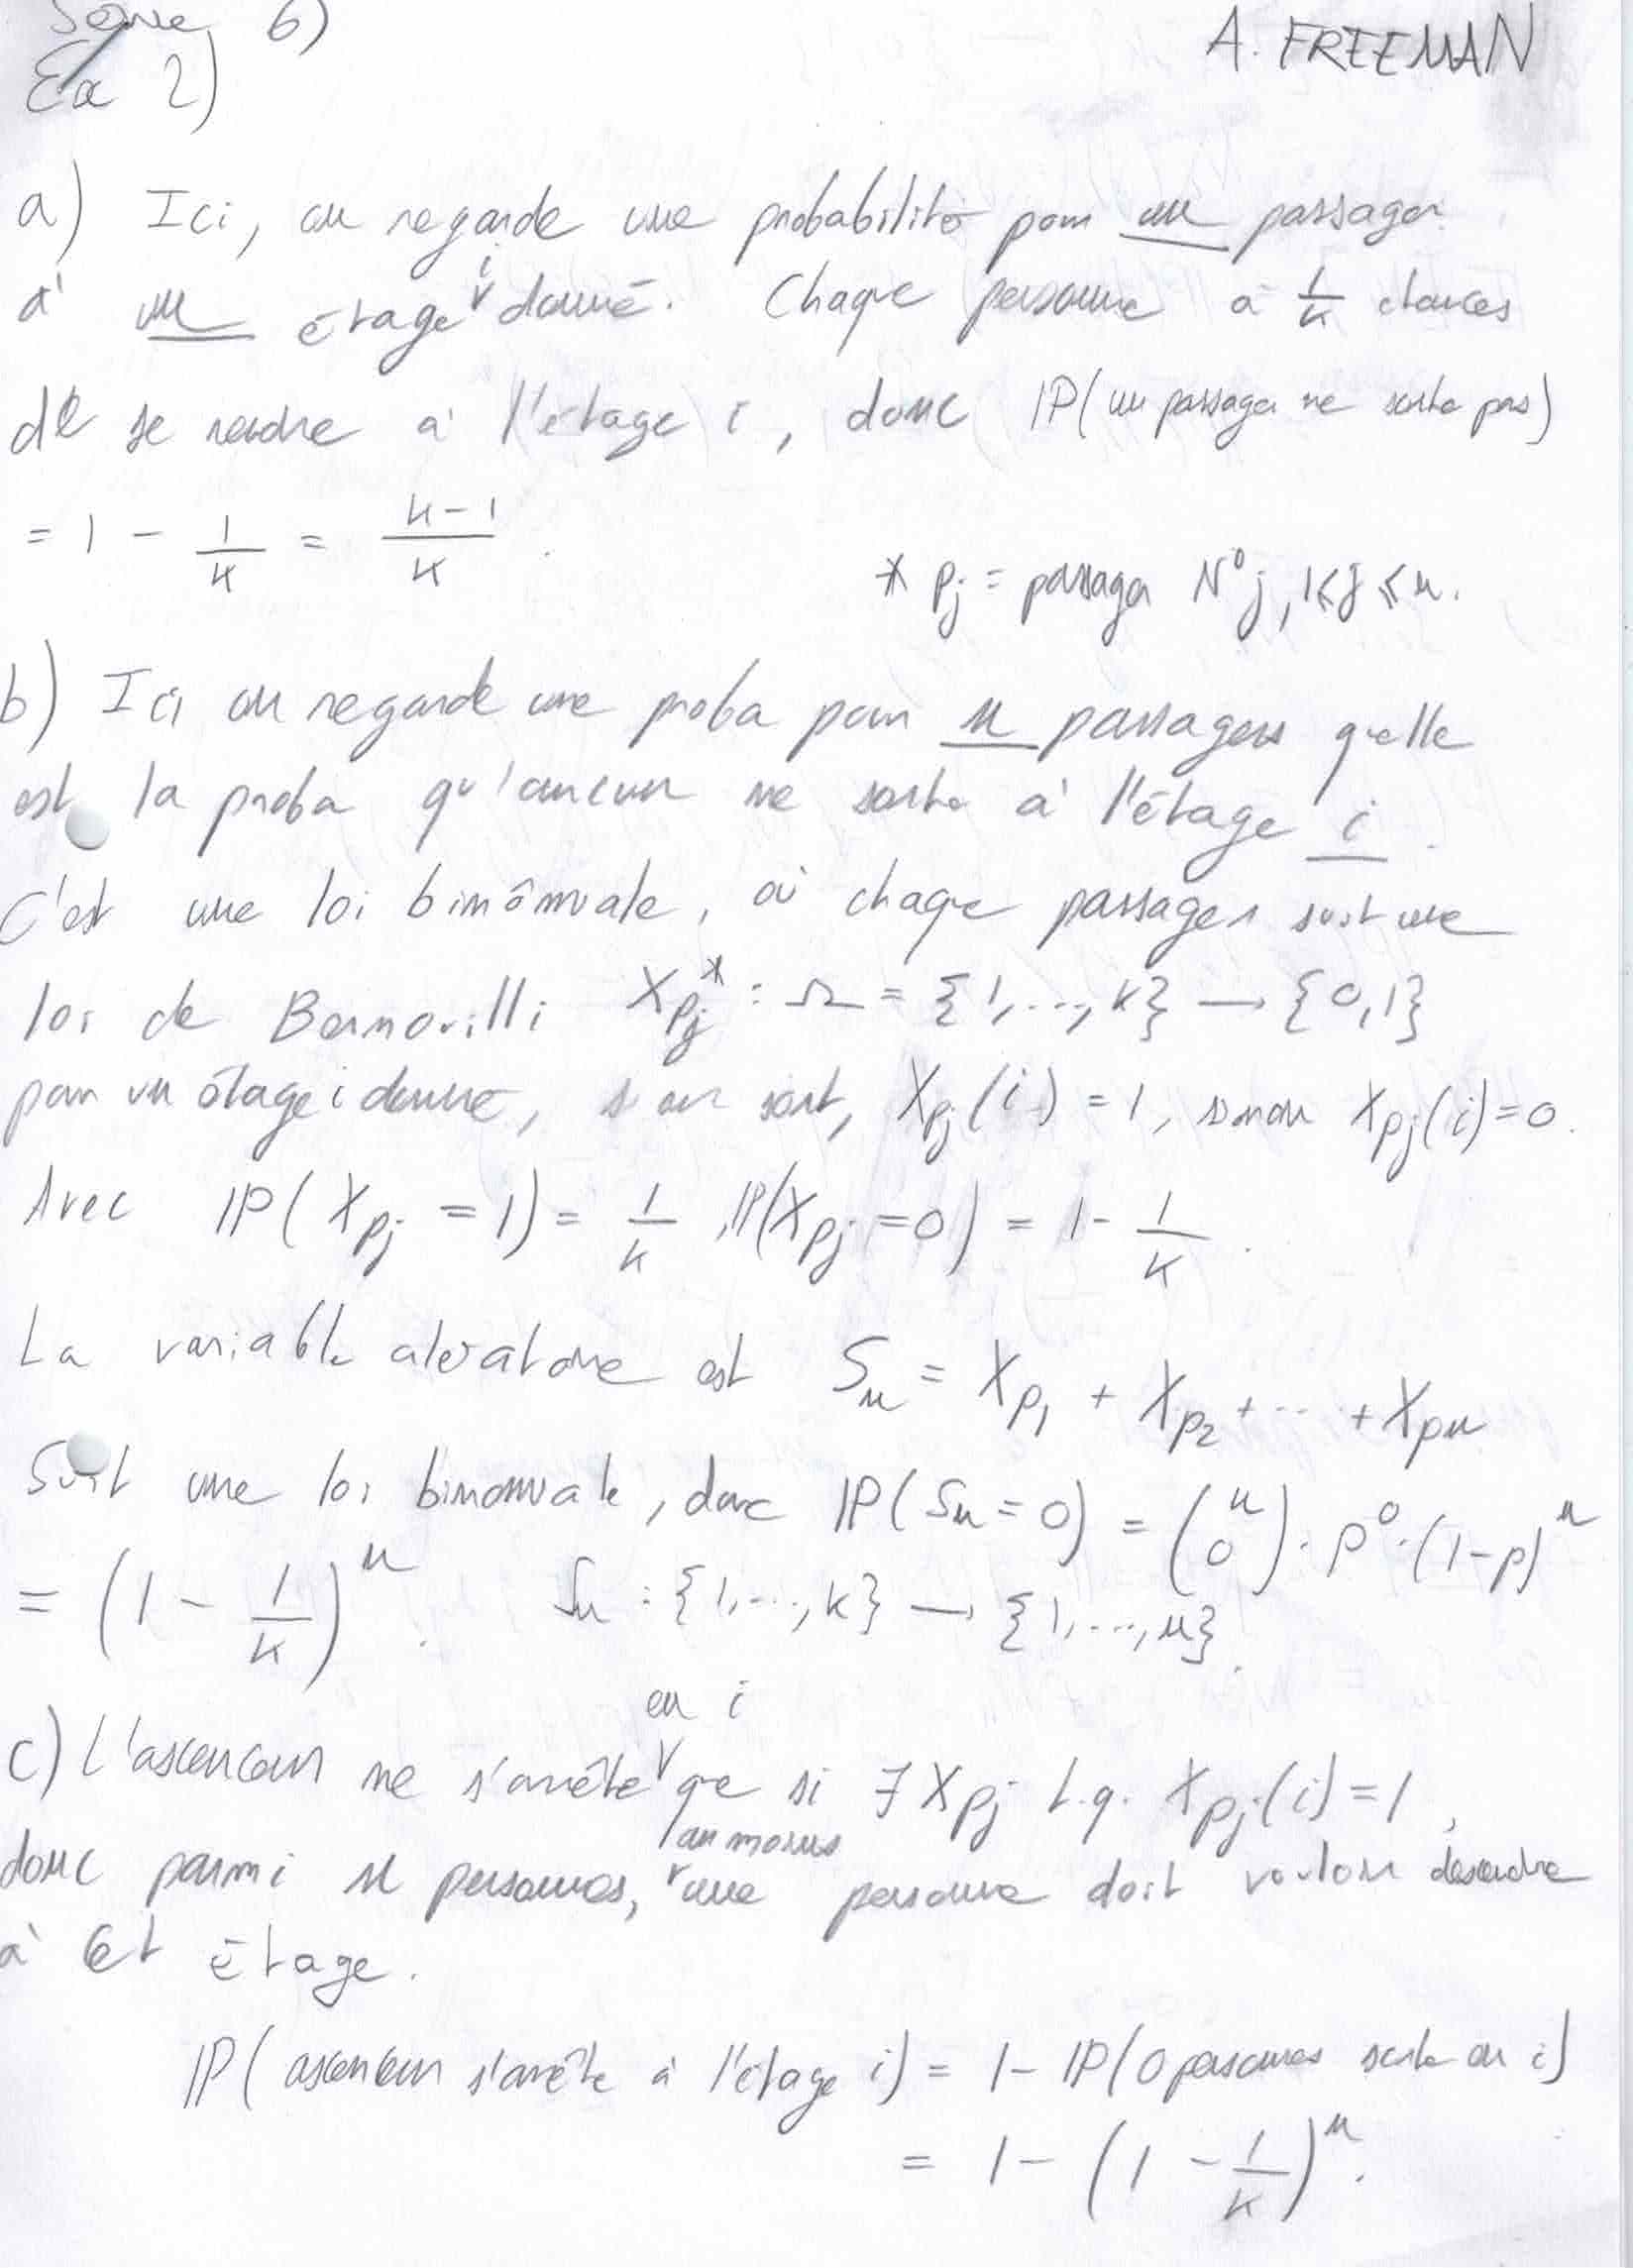 Série 6)
A. FREEMAN
Ex 2)
a) Ici, on regarde une probabilité pour un passager
à un étage i donné. Chaque personne a 1/k chances
de se rendre à l'étage i, donc IP(un passager ne sorte pas)
= 1 - 1/k = k-1/k.
* pj = passager N°j, 1≤j≤n.
b) Ici on regarde une proba pour n passagers quelle
est la proba qu'aucun ne sorte à l'étage i.
C'est une loi binômiale, où chaque passager suit une
loi de Bernouilli Xpj* : Ω = {1,...,k} → {0,1}
pour un étage i donné, si on sort, Xpj(i) = 1, sinon Xpj(i)=0.
Avec IP(Xpj = 1) = 1/k, IP(Xpj = 0) = 1 - 1/k.
La variable aléatoire est Sn = Xp1 + Xp2 + ... + Xpn
Suit une loi binomiale, donc IP(Sn = 0) = (n 0) · p^0 · (1-p)^n
= (1 - 1/k)^n. Sn : {1,...,k} → {1,...,n}.
c) L'ascenceur ne s'arrête en i que si ∃ Xpj t.q. Xpj(i) = 1,
donc parmi n personnes, au moins une personne doit vouloir descendre
à cet étage.
IP(ascenceur s'arrête à l'étage i) = 1 - IP(0 personnes sorte en i)
= 1 - (1 - 1/k)^n.